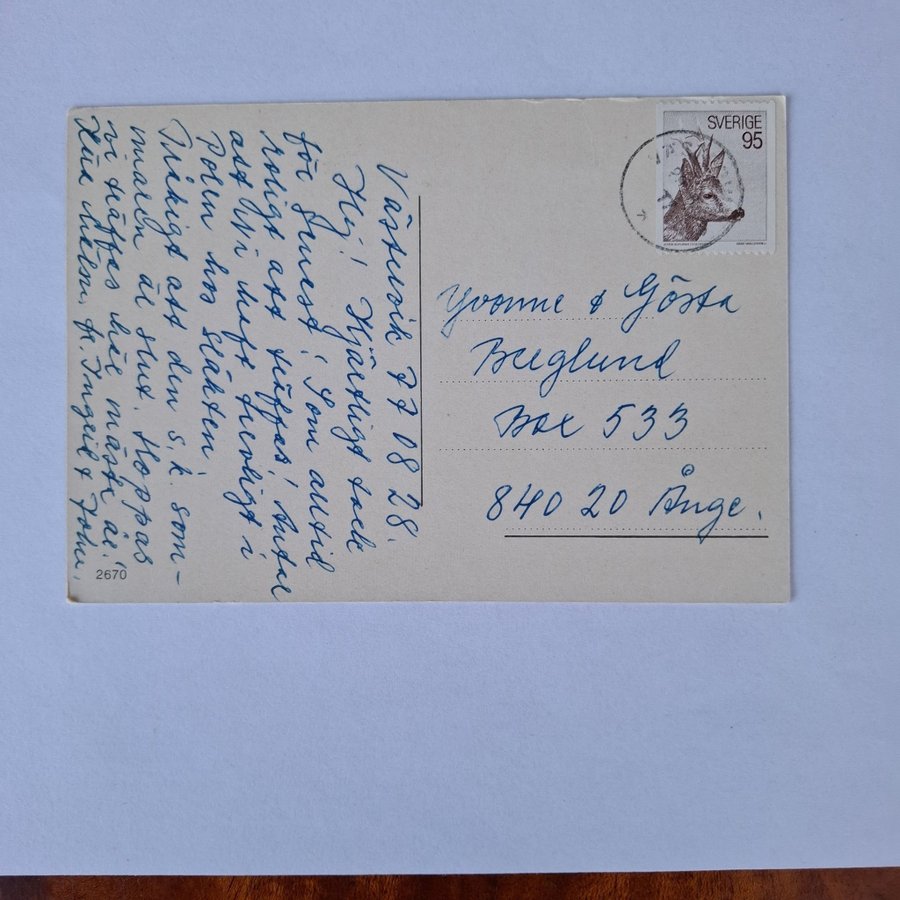 Västervik 77 08 28.
Hej! Hjärtligt tack
för senast! Som alltid
roligt att träffas! Antar
att Ni haft trevligt i
Polen hos släkten.
Tråkigt att den s.k. som-
maren är slut. Hoppas
vi träffas här nästa år!
fr. Ingrid & John.
2670
SVERIGE
95
Yvonne & Gösta
Berglund
Box 533
840 20 Ånge.